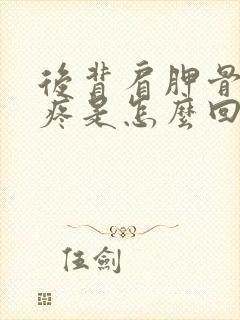 後背肩胛骨
疼是怎麼回
伍劍